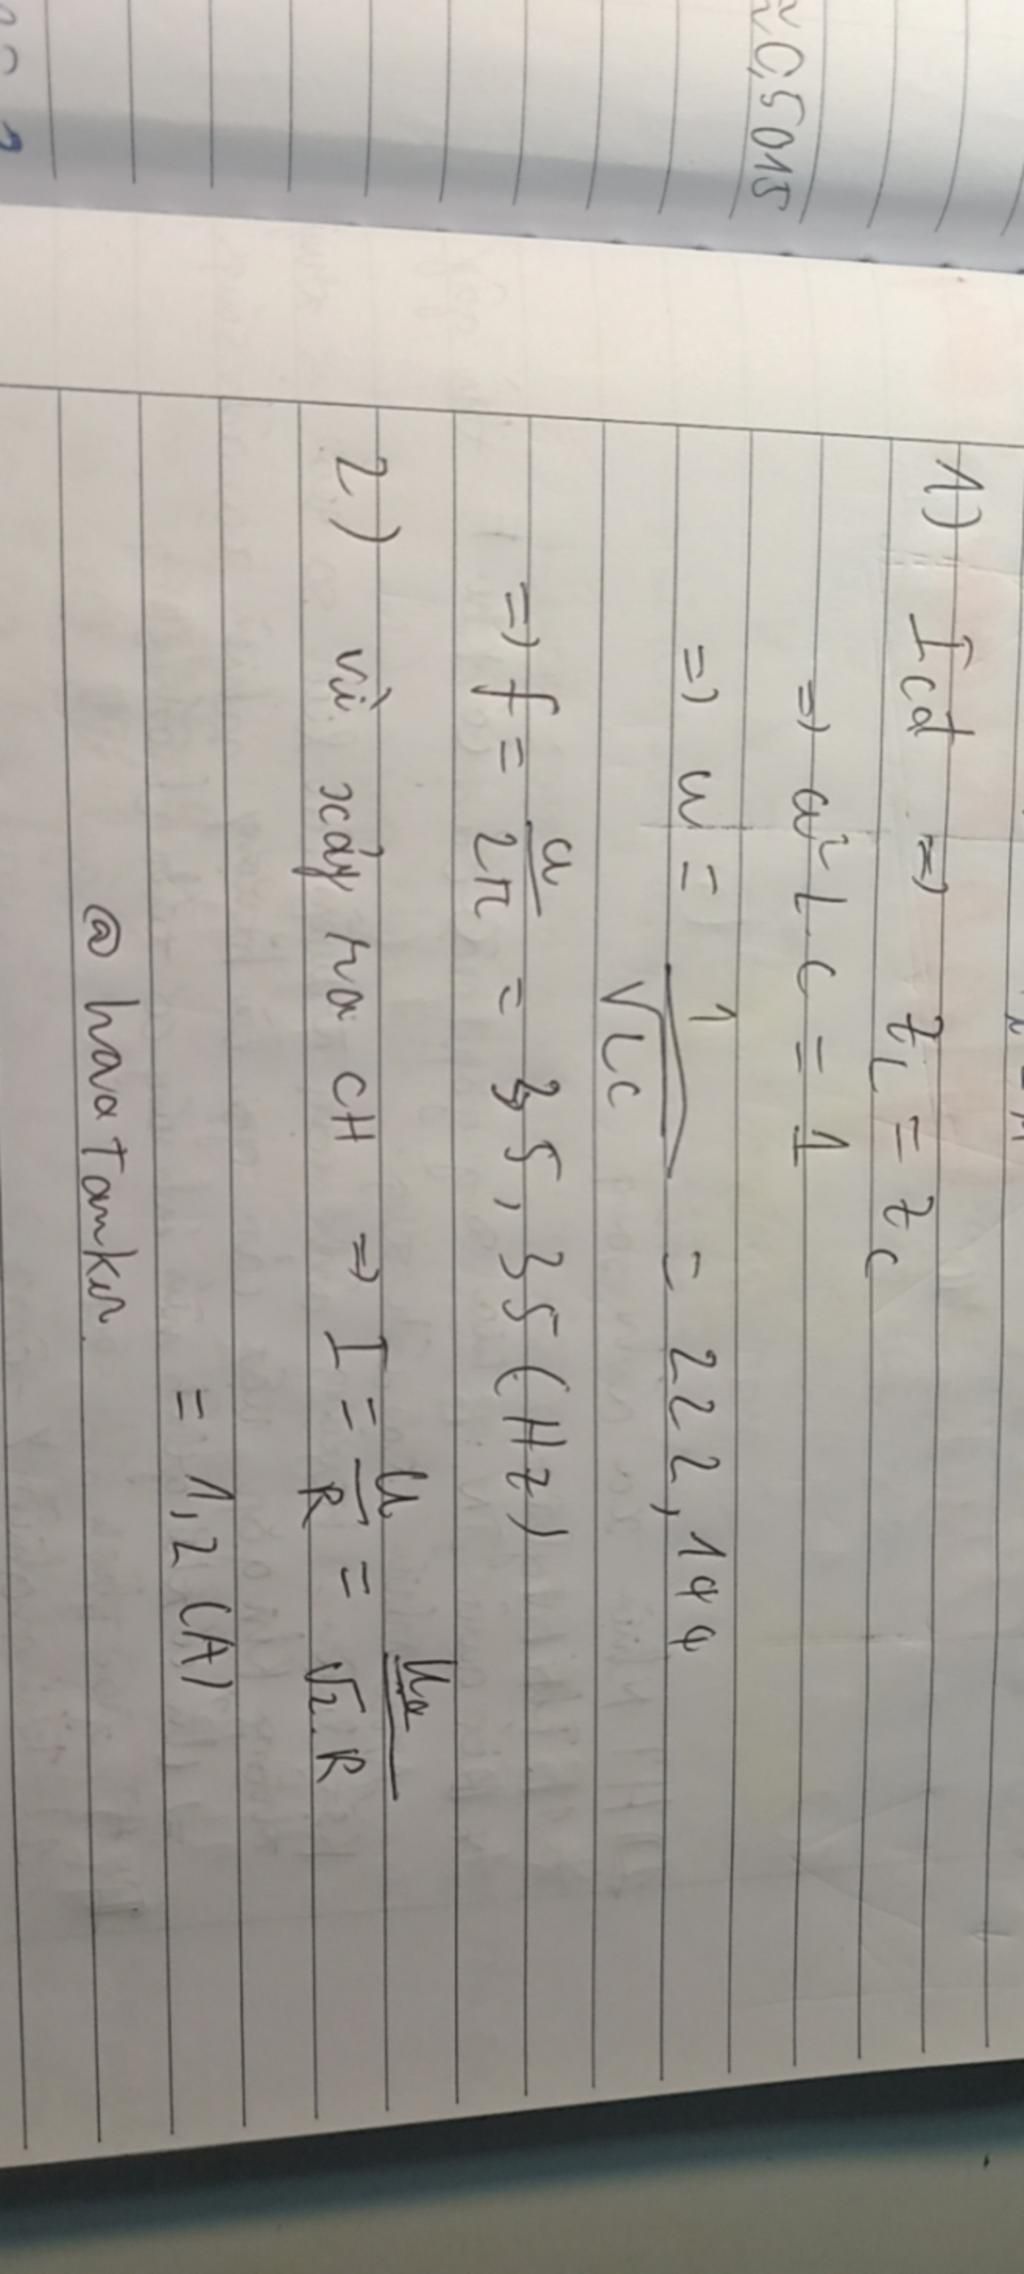 ≈0,5015
1) Icđ => ZL = ZC
=> ω² L.C = 1
=> ω = 1/√LC = 222,144
=> f = ω/2π = 35,35 (Hz)
2.) vì xảy ra CH => I = U/R = U₀/√2.R
= 1,2 (A)
@ havatanker